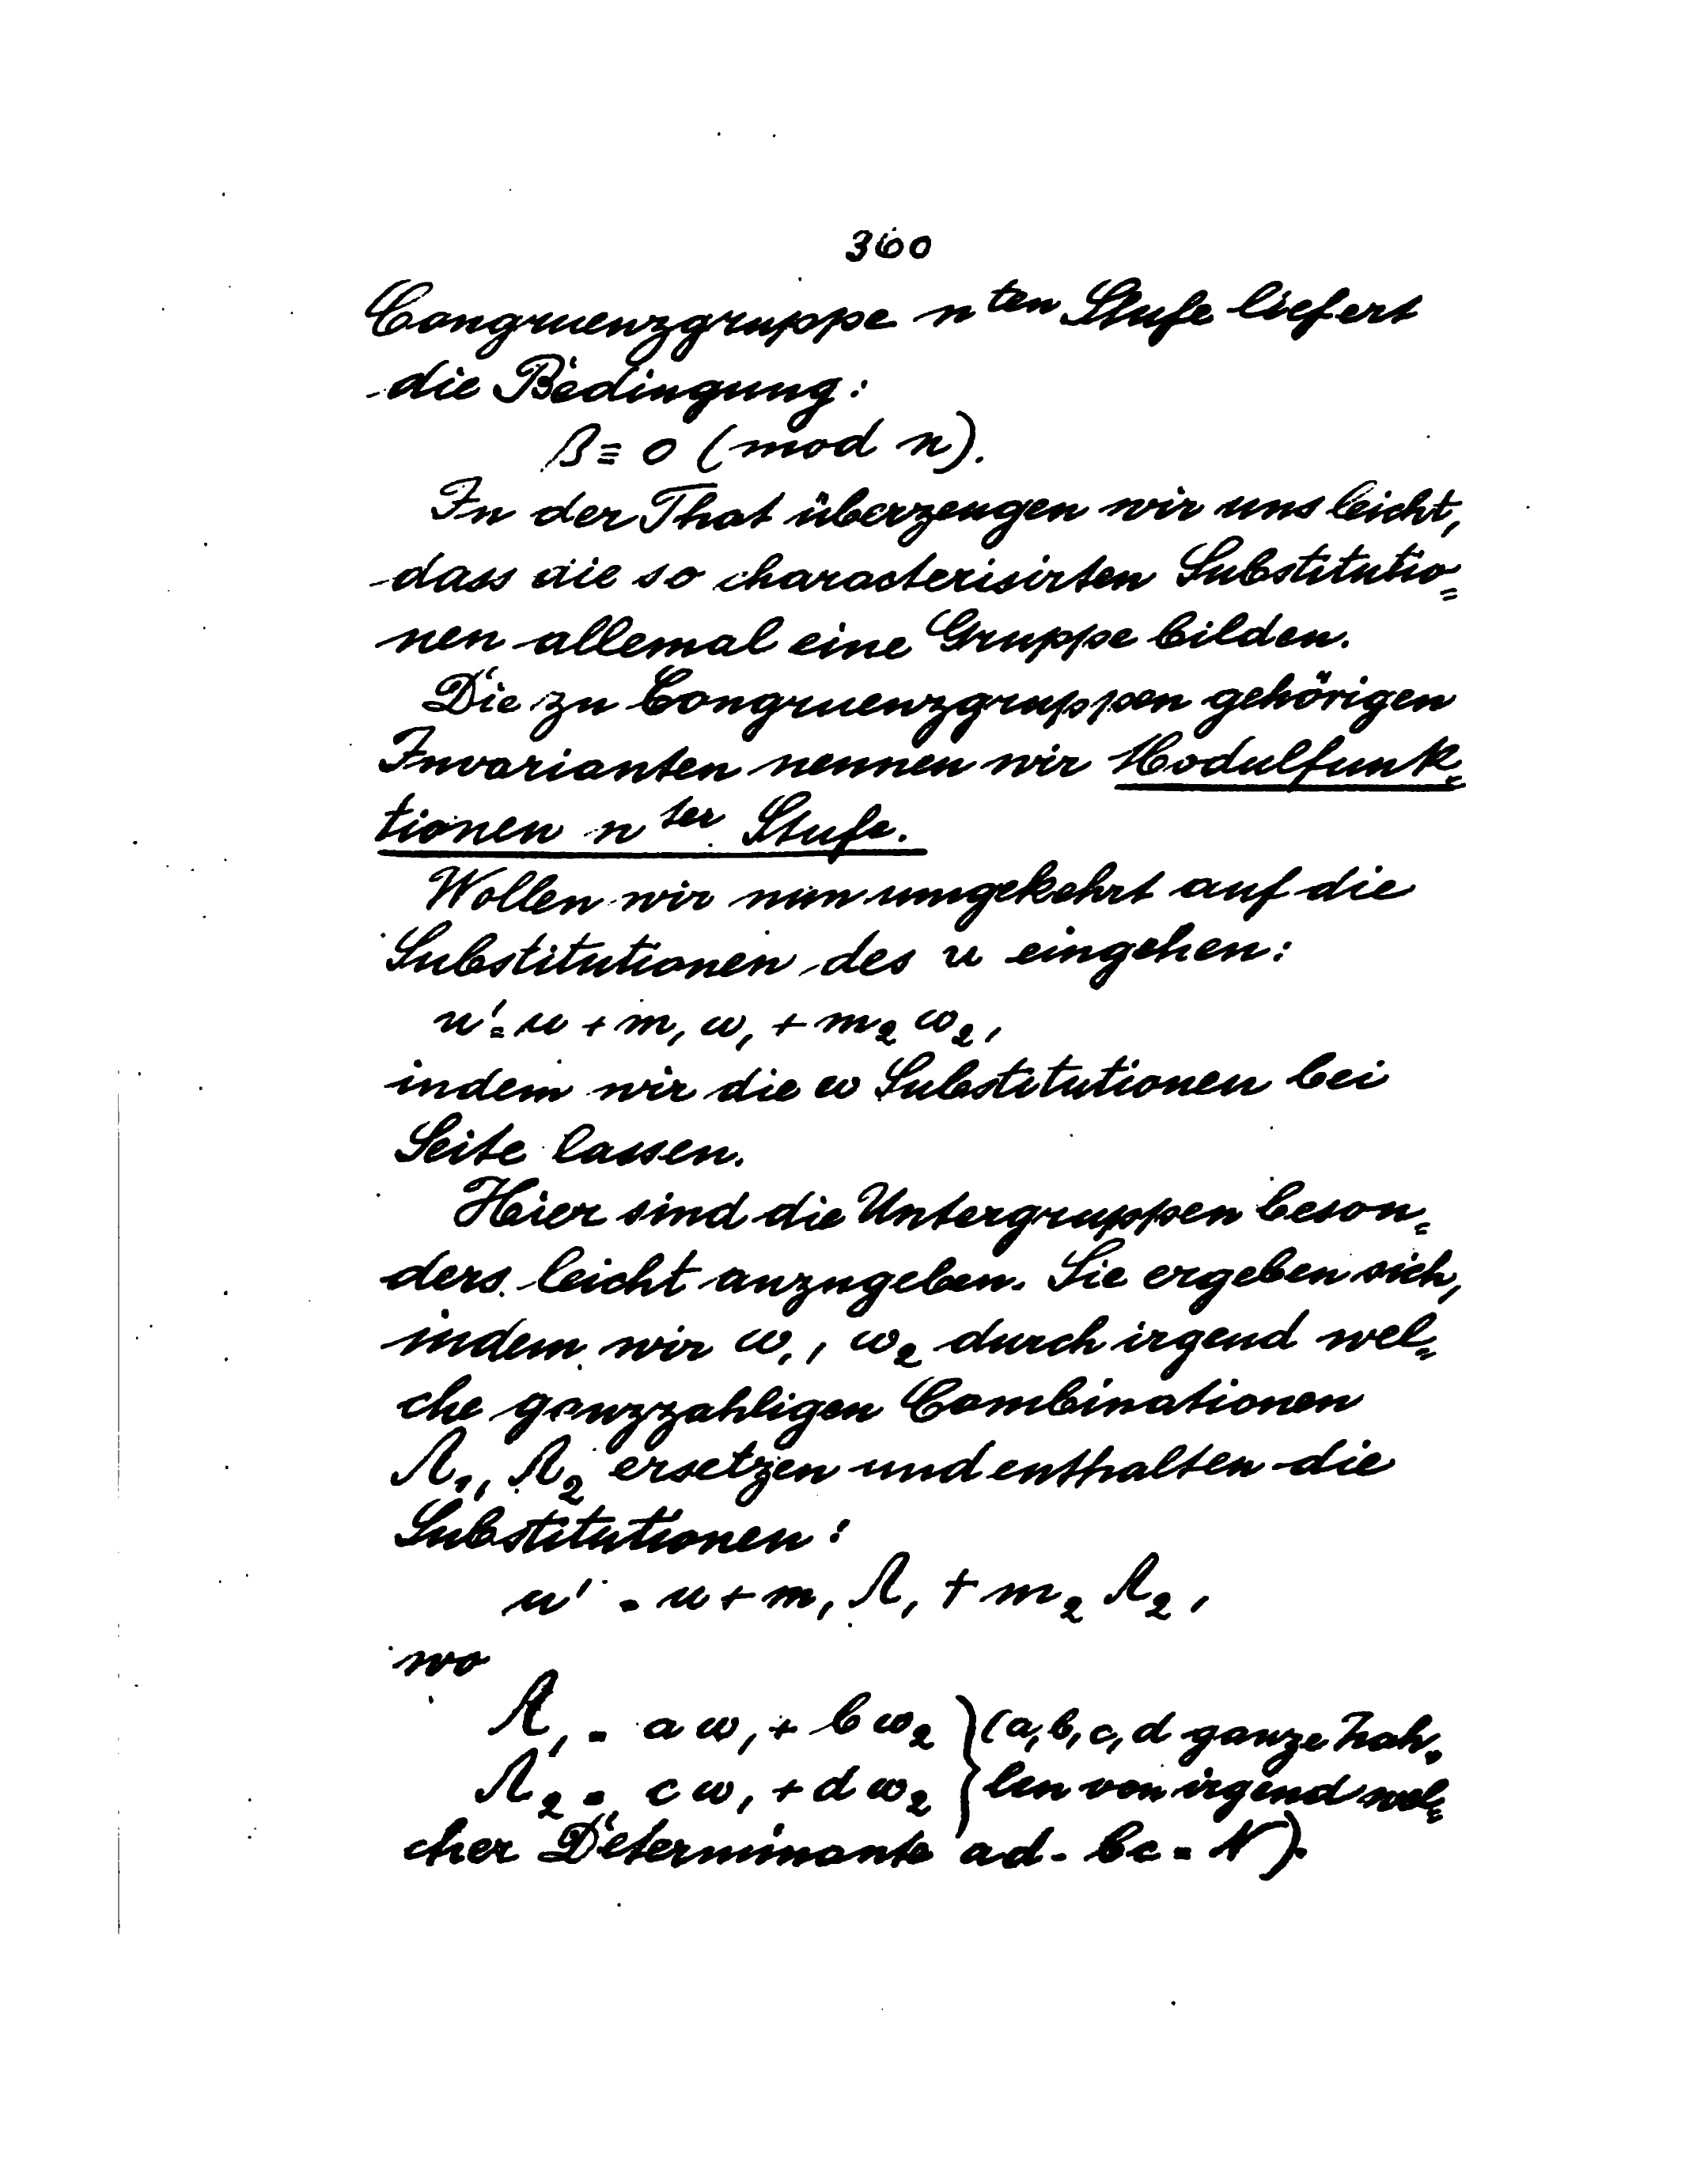 360
Congruenzgruppe n ten Stufe liefert
die Bedingung:
β ≡ 0 (mod n).
In der That überzeugen wir uns leicht,
dass die so characterisirten Substitutio=
nen allemal eine Gruppe bilden.
Die zu Congruenzgruppen gehörigen
Invarianten nennen wir Modulfunk=
tionen n ter Stufe.
Wollen wir nun umgekehrt auf die
Substitutionen des u eingehen:
u' = u + m₁ ω₁ + m₂ ω₂,
indem wir die ω Substitutionen bei
Seite lassen.
Hier sind die Untergruppen beson=
ders leicht anzugeben. Sie ergeben sich,
indem wir ω₁, ω₂ durch irgend wel=
che ganzzahligen Combinationen
Λ₁, Λ₂ ersetzen und enthalten die
Substitutionen:
u' = u + m₁ Λ₁ + m₂ Λ₂,
wo
Λ₁ = a ω₁ + b ω₂ } (a, b, c, d ganze Zah=
Λ₂ = c ω₁ + d ω₂ } len von irgend wel=
cher Determinante ad - bc = N).